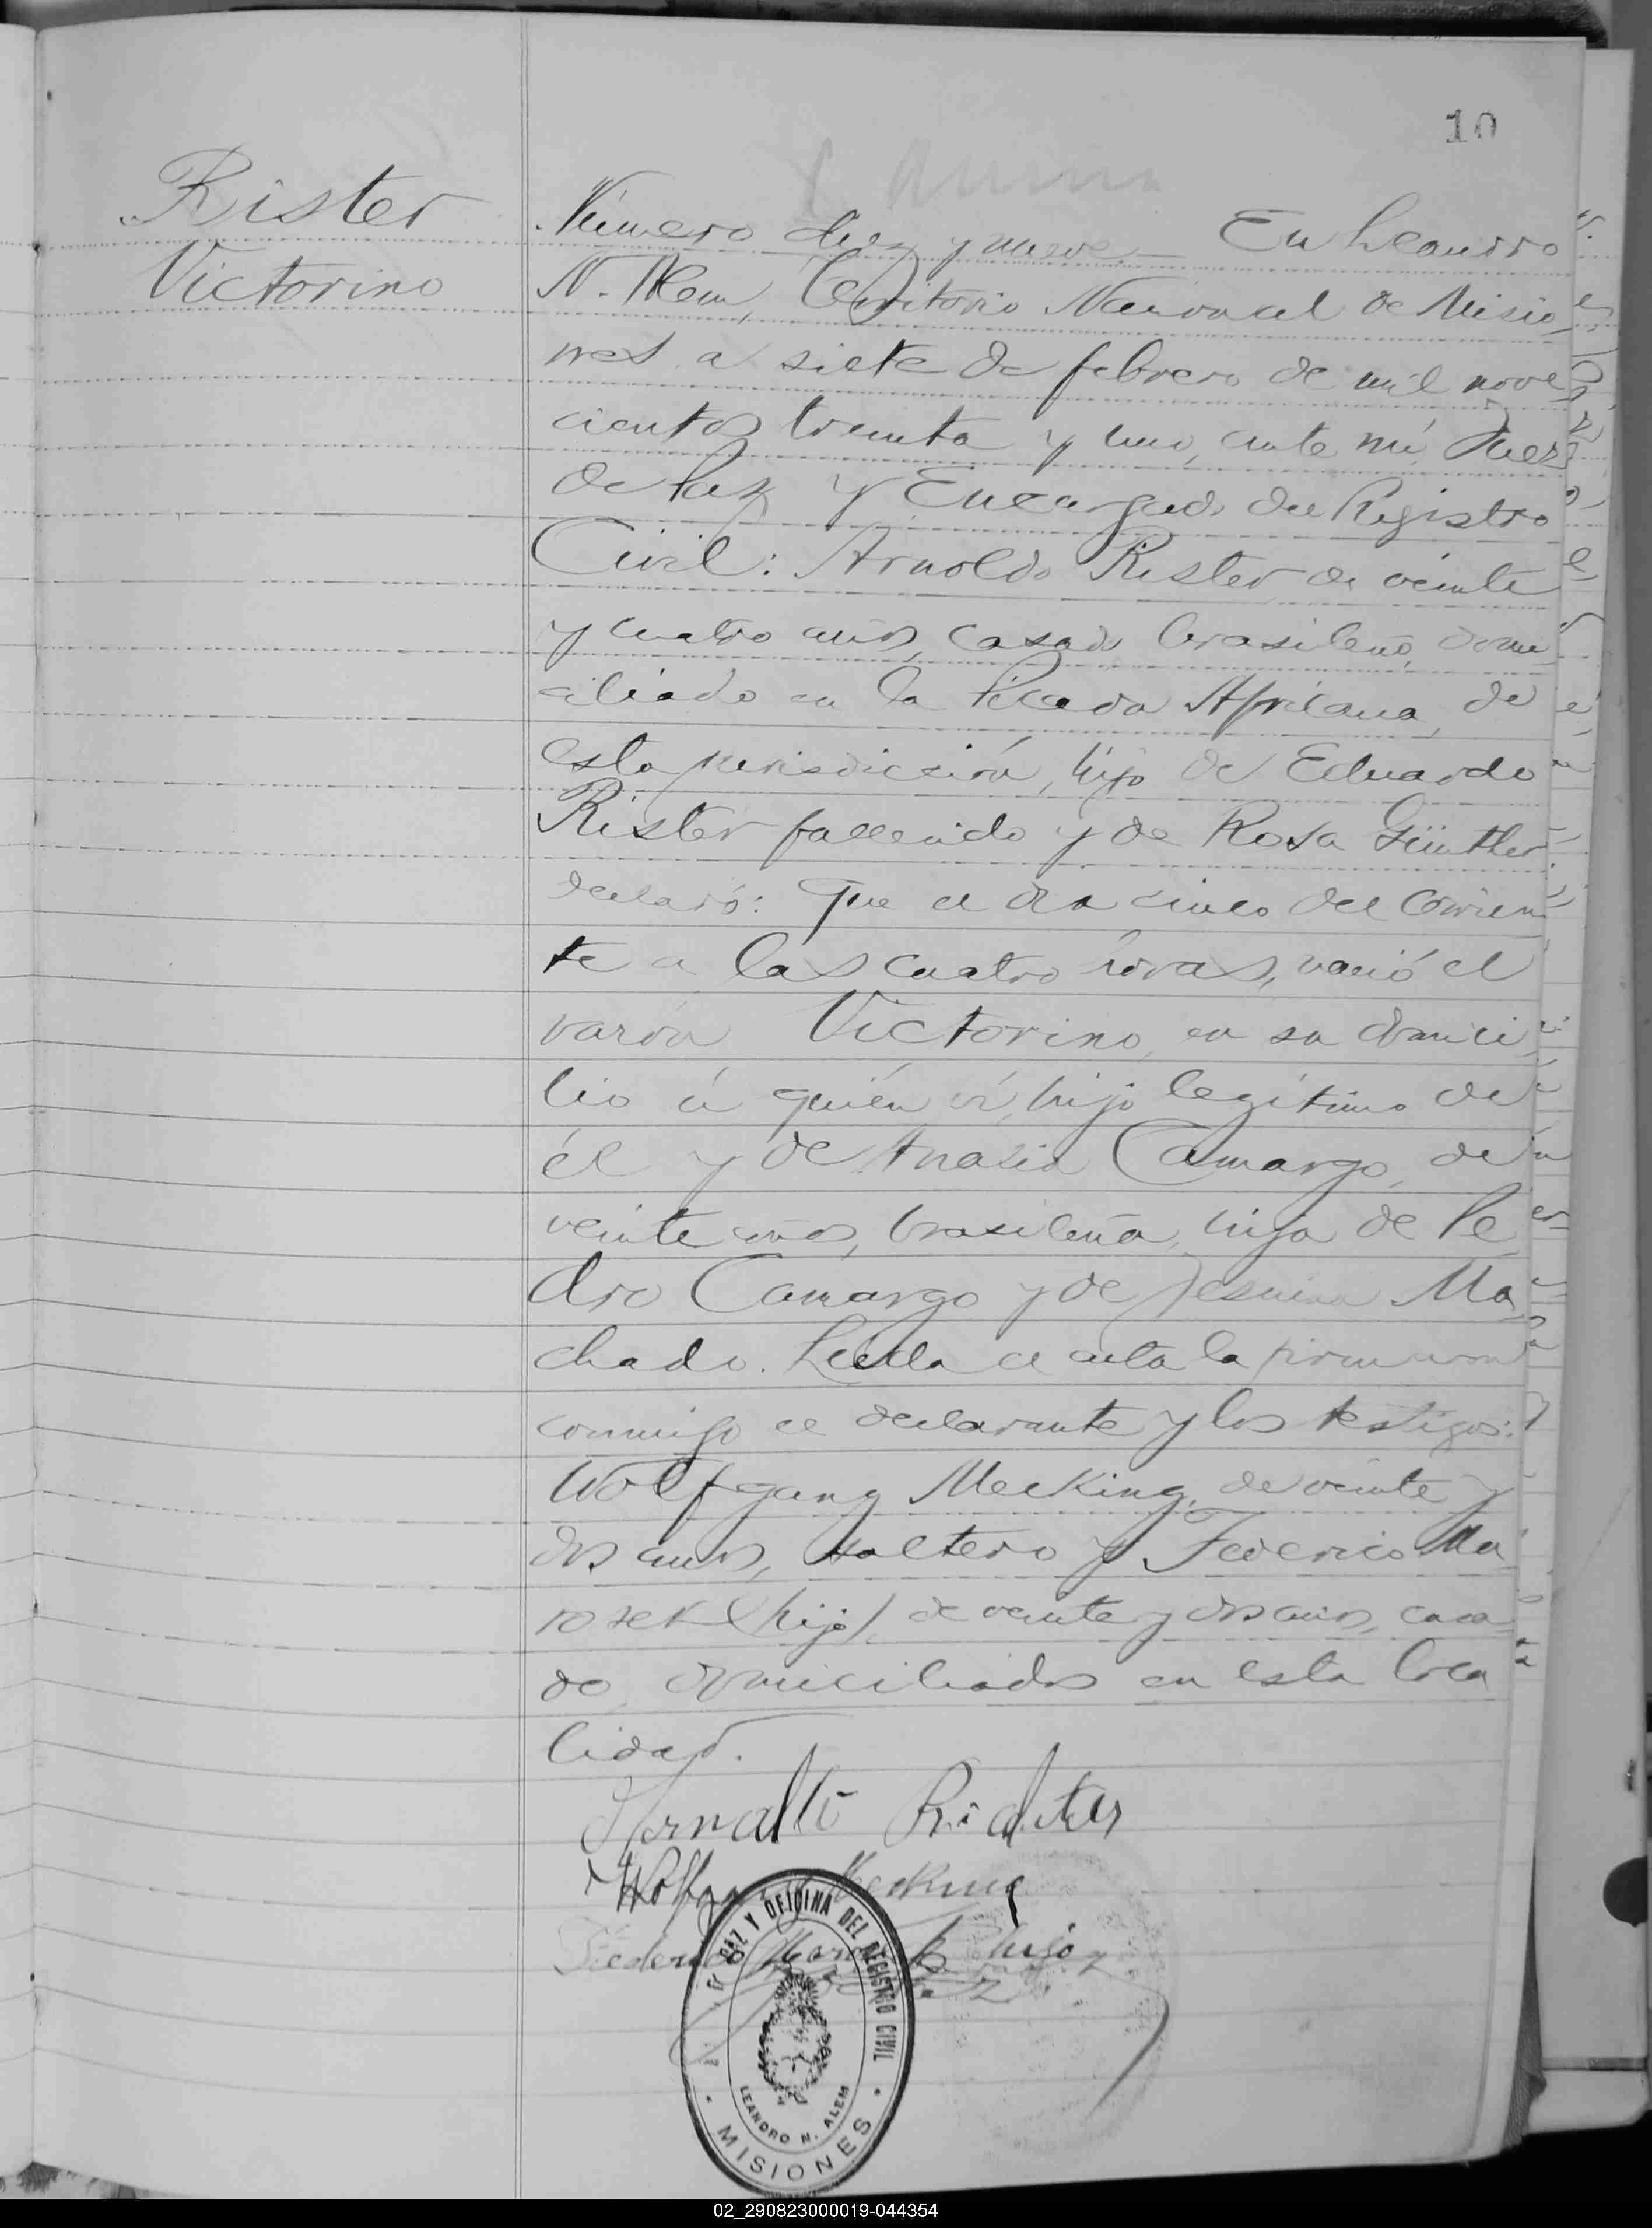 10
Rister
Victorino
Número diez y nueve.— En Leandro
N. Alem, Territorio Nacional de Misio
nes a siete de febrero de mil nove
cientos treinta y uno, ante mí, Juez
de Paz y Encargado del Registro
Civil: Arnoldo Rister de veinte
y cuatro años, casado brasileño, domi
ciliado en la Picada Africana, de
esta jurisdicción, hijo de Eduardo
Rister fallecido y de Rosa Günther
declaró: Que el día cinco del corrien
te a las cuatro horas, nació el
varón Victorino, en su domici
lio á quién ví, hijo legítimo de
él y de Analia Camargo, de
veinte años, brasileña, hija de Pe
dro Camargo y de Jesuina Ma
chado. Leida el acta la firmaron
conmigo el declarante y los testigos:
Wolfgang Mecking, de veinte y
dos años, soltero y Federico Ma
rozek (hijo), de veinte y dos años, casa
do, domiciliados en esta loca
lidad.
Arnaldo Richter
Wolfgang Mecking
Federico hijo
PAZ Y OFICINA DEL REGISTRO CIVIL
LEANDRO N. ALEM
MISIONES
02_290823000019-044354